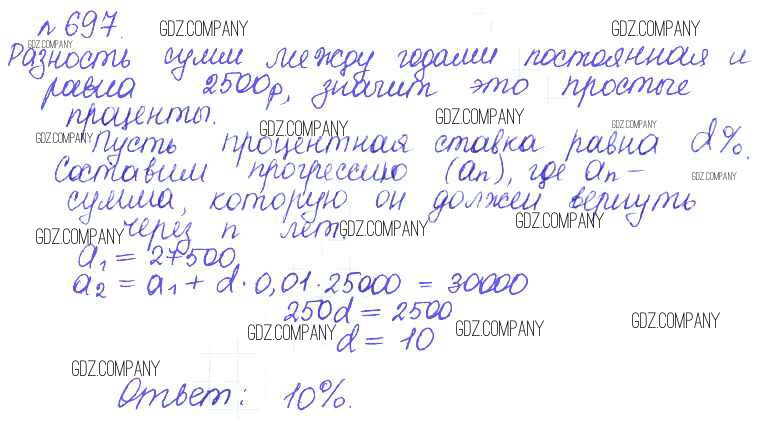 n 697. GDZ.COMPANY GDZ.COMPANY
GDZ.COMPANY
Разность сумм между годами постоянная и
равна 2500р, значит это простые
проценты. GDZ.COMPANY GDZ.COMPANY GDZ.COMPANY
GDZ.COMPANY Пусть процентная ставка равна d%.
Составим прогрессию (an), где an - GDZ.COMPANY
сумма, которую он должен вернуть
GDZ.COMPANY через n лет. GDZ.COMPANY GDZ.COMPANY
a1 = 27500
a2 = a1 + d·0,01·25000 = 30000
250d = 2500
GDZ.COMPANY d = 10 GDZ.COMPANY GDZ.COMPANY
GDZ.COMPANY
Ответ: 10%.